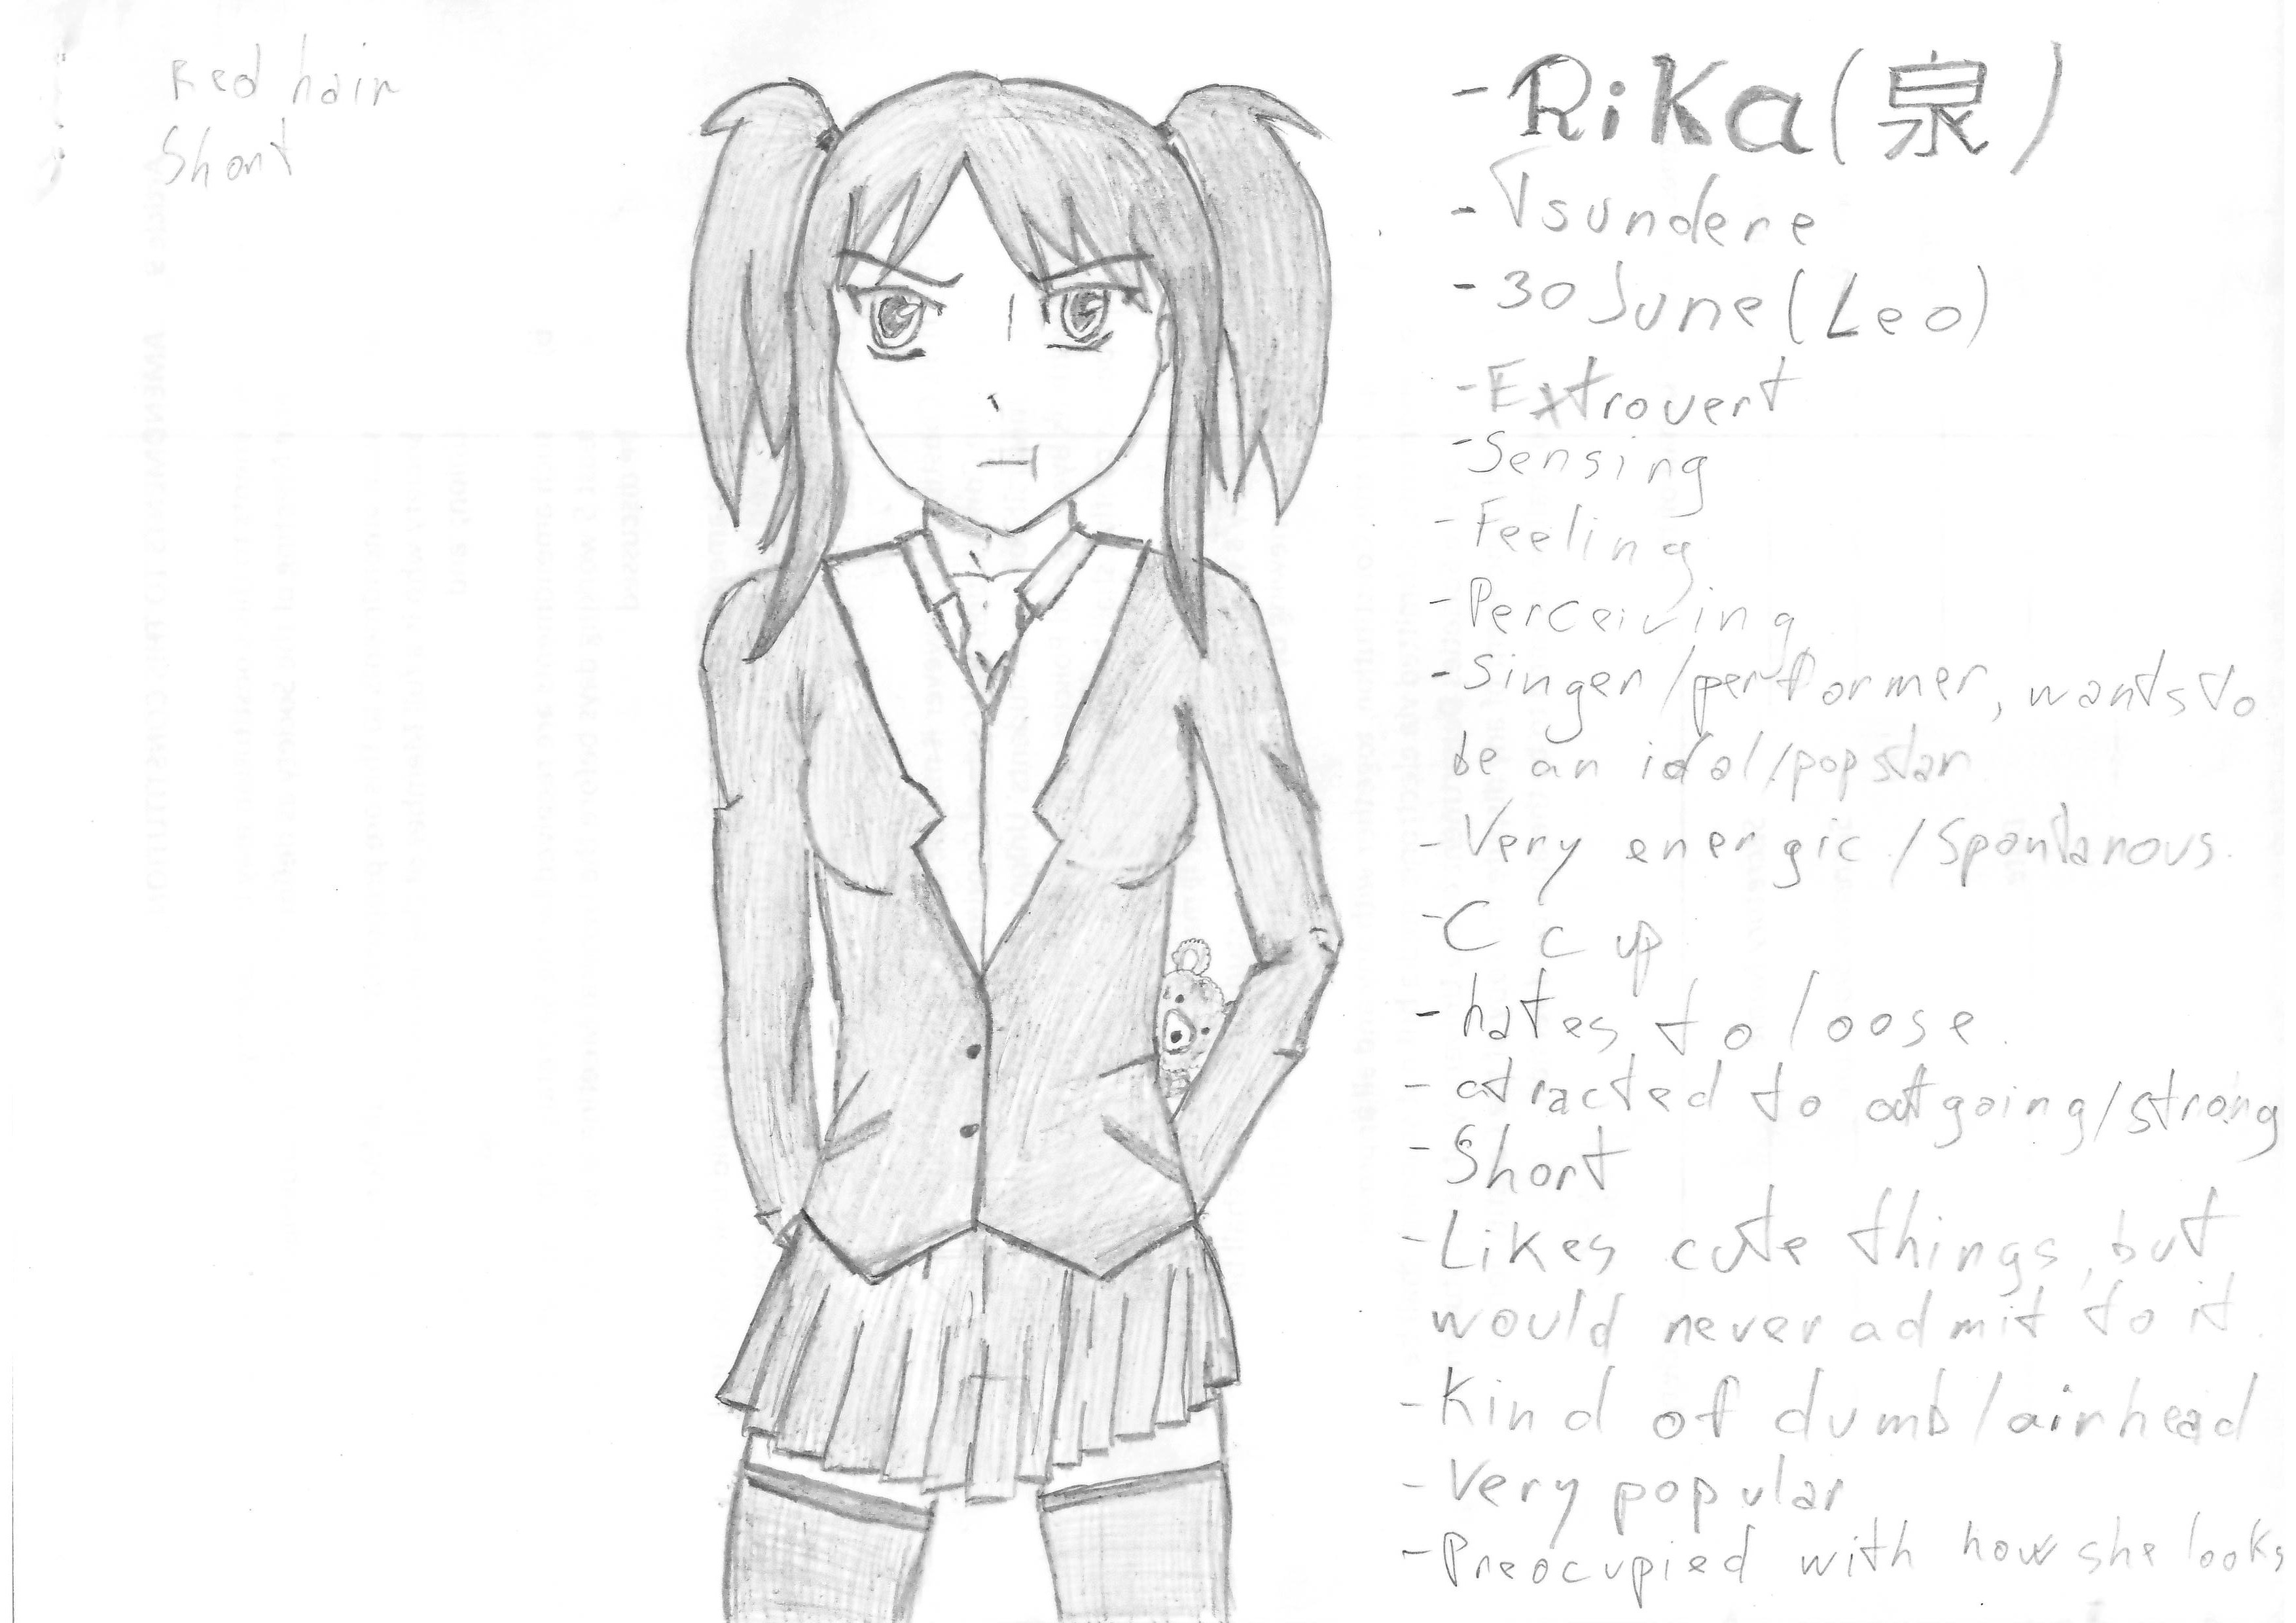 Red hair
Short
- Rika (泉)
- Tsundere
- 30 June (Leo)
- Extrovert
- Sensing
- Feeling
- Perceiving
- Singer/performer, wants to
be an idol/popstar
- Very energic / Spontanous
- C cup
- hates to loose
- atracted to outgoing/strong
- Short
- Likes cute things, but
would never admit to it
- Kind of dumb/airhead
- Very popular
- Preocupied with how she looks